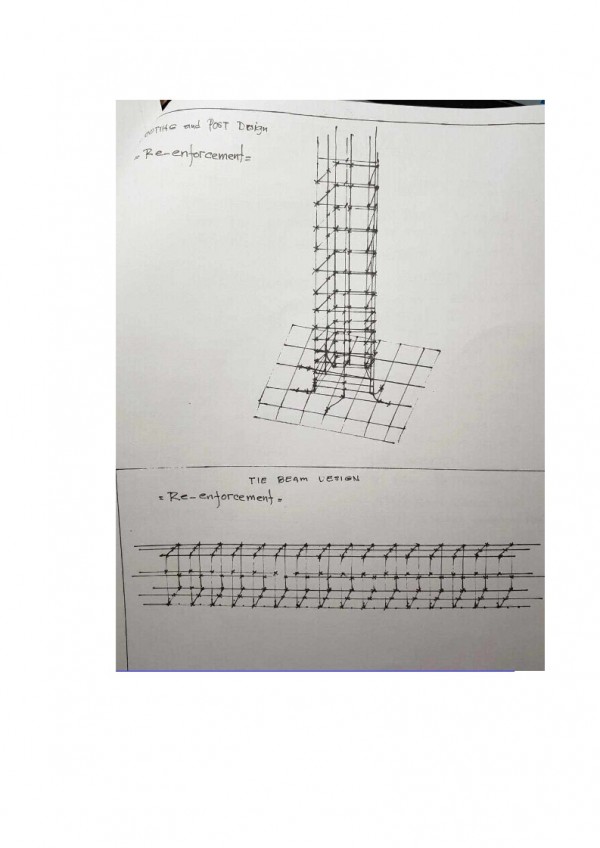 and Post Design
= Re-enforcement =
TIE BEAM DESIGN
= Re-enforcement =